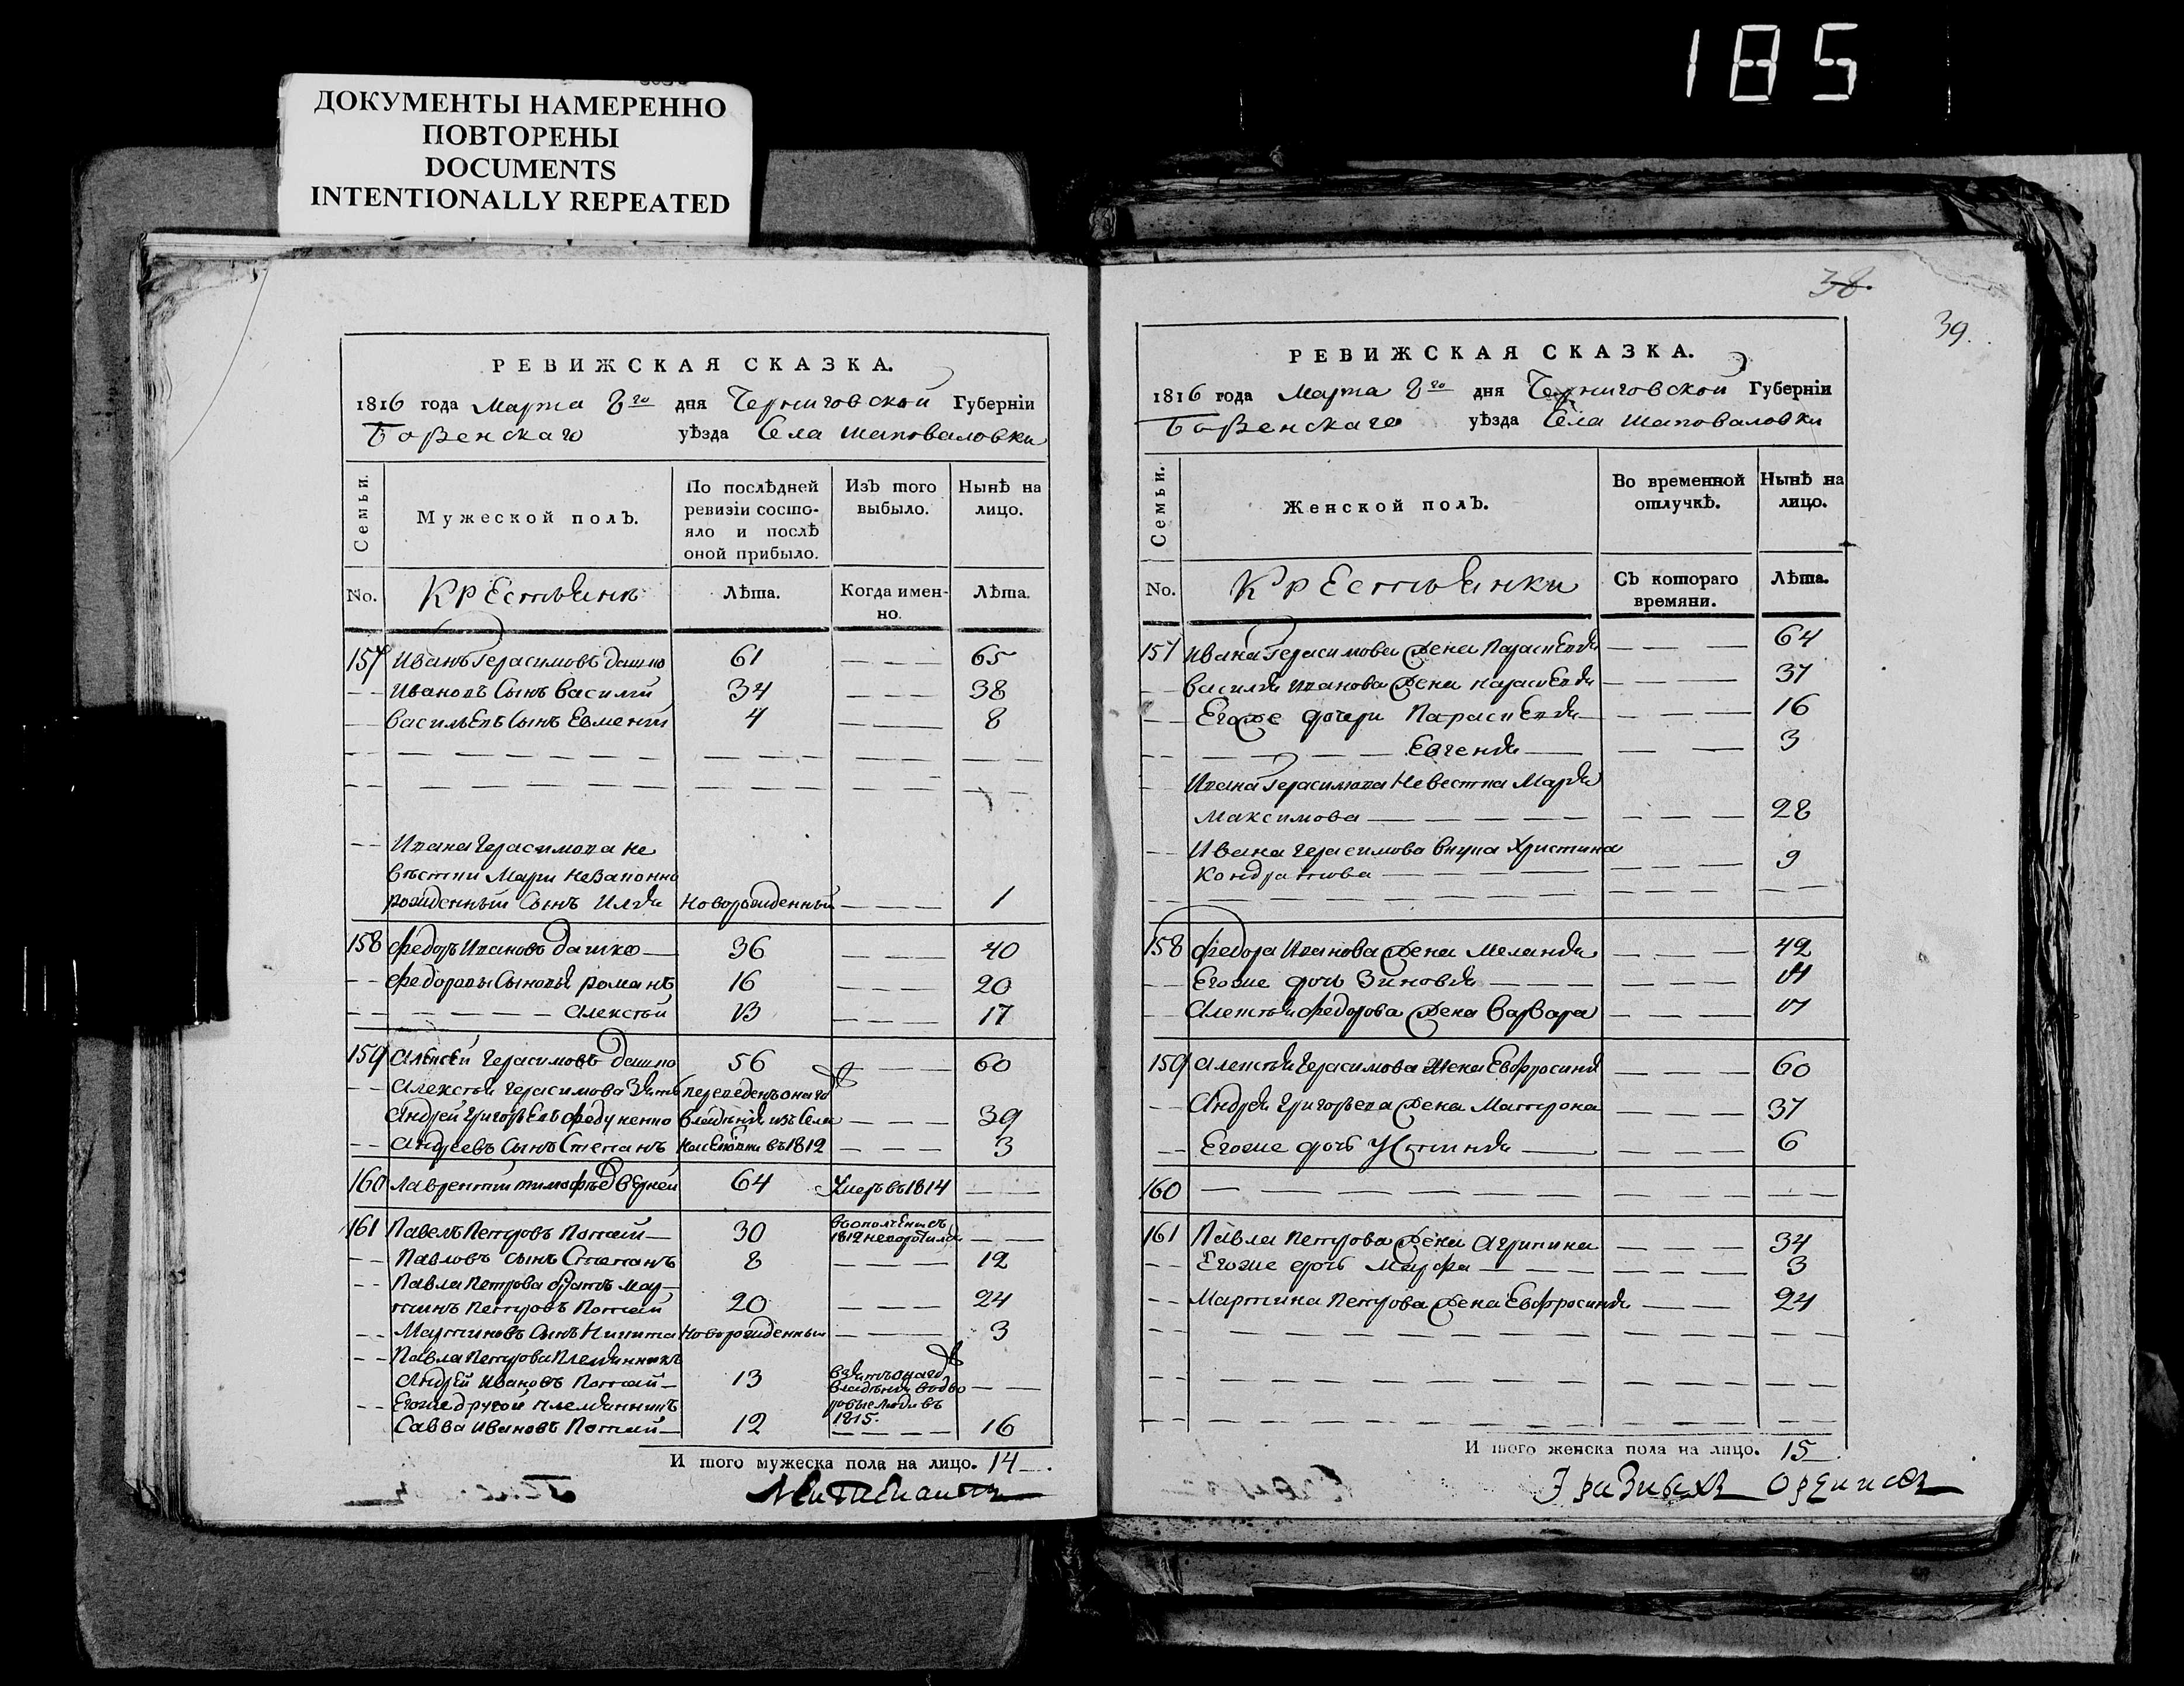 185
ДОКУМЕНТЫ НАМЕРЕННО
ПОВТОРЕНЫ
DOCUMENTS
INTENTIONALLY REPEATED
РЕВИЖСКАЯ СКАЗКА.
1816 года Марта 8го дня Черниговской Губерніи
Борзенскаго уѣзда Села Шаповаловки
Семьи.
Мужеской полъ.
По послѣдней ревизіи состояло и послѣ оной прибыло.
Изъ того выбыло.
Нынѣ на лицо.
No. Крестьянъ Лѣта. Когда именно. Лѣта.
157 Иванъ Герасимовъ Дашко 61 — — — 65
— — Ивановъ Сынъ Василій 34 — — — 38
— — Васильевъ Сынъ Евменій 4 — — — 8
— — Ивана Герасимова не
вѣстки Марѝи незаконно
рожденный Сынъ Илья Новорожденный — — — 1
158 Федоръ Ивановъ Дашко — 36 — — — 40
— — Федоровы Сыновья Романъ 16 — — — 20
— — — — — — Алексѣй 13 — — — 17
159 Алексѣй Герасимовъ Дашко 56 — — — 60
— — Алексѣя Герасимова Зять переведенъ онаго
Андрей Григорьевъ Федуненко владѣнія изъ Села — — — 39
— — Андреевъ Сынъ Степанъ въ 1812 — — — 3
160 Лаврентій Тимофѣевъ 64 Умеръ въ 1814 — —
161 Павелъ Петровъ Потай — 30 1812 — —
— — Павловъ Сынъ Степанъ 8 — — — 12
— — Павла Петрова братъ Мар-
тинъ Петровъ Потай 20 — — — 24
— — Мартиновъ Сынъ Никита Новорожденный — — — 3
— — Павла Петрова Племянникъ
Андрей Ивановъ Потай — 13 взятъ онаго владѣнія во дво — —
— — Егоже другой племянникъ ровые люди въ
Савва Ивановъ Потай — 12 1815. — — — 16
И того мужеска пола на лицо. 14
38.
39.
РЕВИЖСКАЯ СКАЗКА.
1816 года Марта 8го дня Черниговской Губерніи
Борзенскаго уѣзда Села Шаповаловки
Семьи.
Женской полъ.
Во временной отлучкѣ.
Нынѣ на лицо.
No. Крестьянки Съ котораго времяни. Лѣта.
157 Ивана Герасимова Жена Параскевія — — — 64
— — Василія Иванова Жена Параскевія — — — 37
— — Егоже дочери Параскевія — — — 16
— — — — — Евгенія — — — 3
Ивана Герасимова Невестка Марія
Максимова — — — — — — — 28
— — Ивана Герасимова внука Христина
Кондратова — — — — — — — 9
158 Федора Иванова Жена Меланія — — — 42
— — Егоже дочь Зиновія — — — — — 14
— — Алексѣя Федорова Жена Варвара — — — 17
159 Алексѣя Герасимова Жена Евфросинія — — — 60
— — Андрея Григорьева Жена Матрона — — — 37
— — Егоже дочь Устинія — — — — 6
160 — — — — — — — — —
161 Павла Петрова Жена Агрипина — — — 34
— — Егоже дочь Марфа — — — — — 3
— — Мартина Петрова Жена Евфросинія — — 24
И того женска пола на лицо. 15